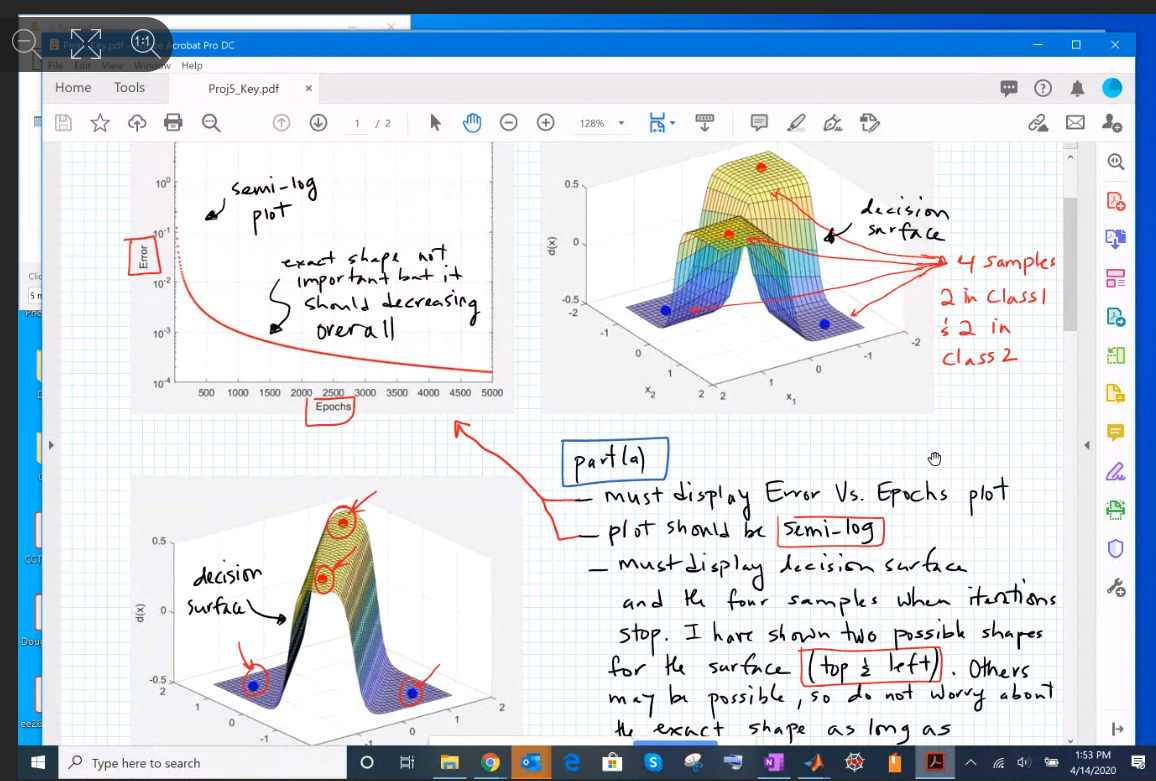 1:1
Acrobat Pro DC
File Edit View Window Help
Home Tools Proj5_Key.pdf ×
1 / 2 128%
10⁰
10⁻¹
10⁻²
10⁻³
10⁻⁴
Error
500 1000 1500 2000 2500 3000 3500 4000 4500 5000
Epochs
semi-log
plot
exact shape not
important but it
should decreasing
overall
0.5
0
-0.5
d(x)
-2
-1
0
1
2
x₂
2
1
0
-1
-2
x₁
decision
surface
4 samples
2 in class1
& 2 in
class2
part(a)
— must display Error Vs. Epochs plot
— plot should be semi-log
— must display decision surface
and the four samples when iterations
stop. I have shown two possible shapes
for the surface (top & left). Others
may be possible, so do not worry about
the exact shape as long as
0.5
0
-0.5
d(x)
2
1
0
-1
2
1
0
-1
decision
surface
Type here to search
1:53 PM
4/14/2020